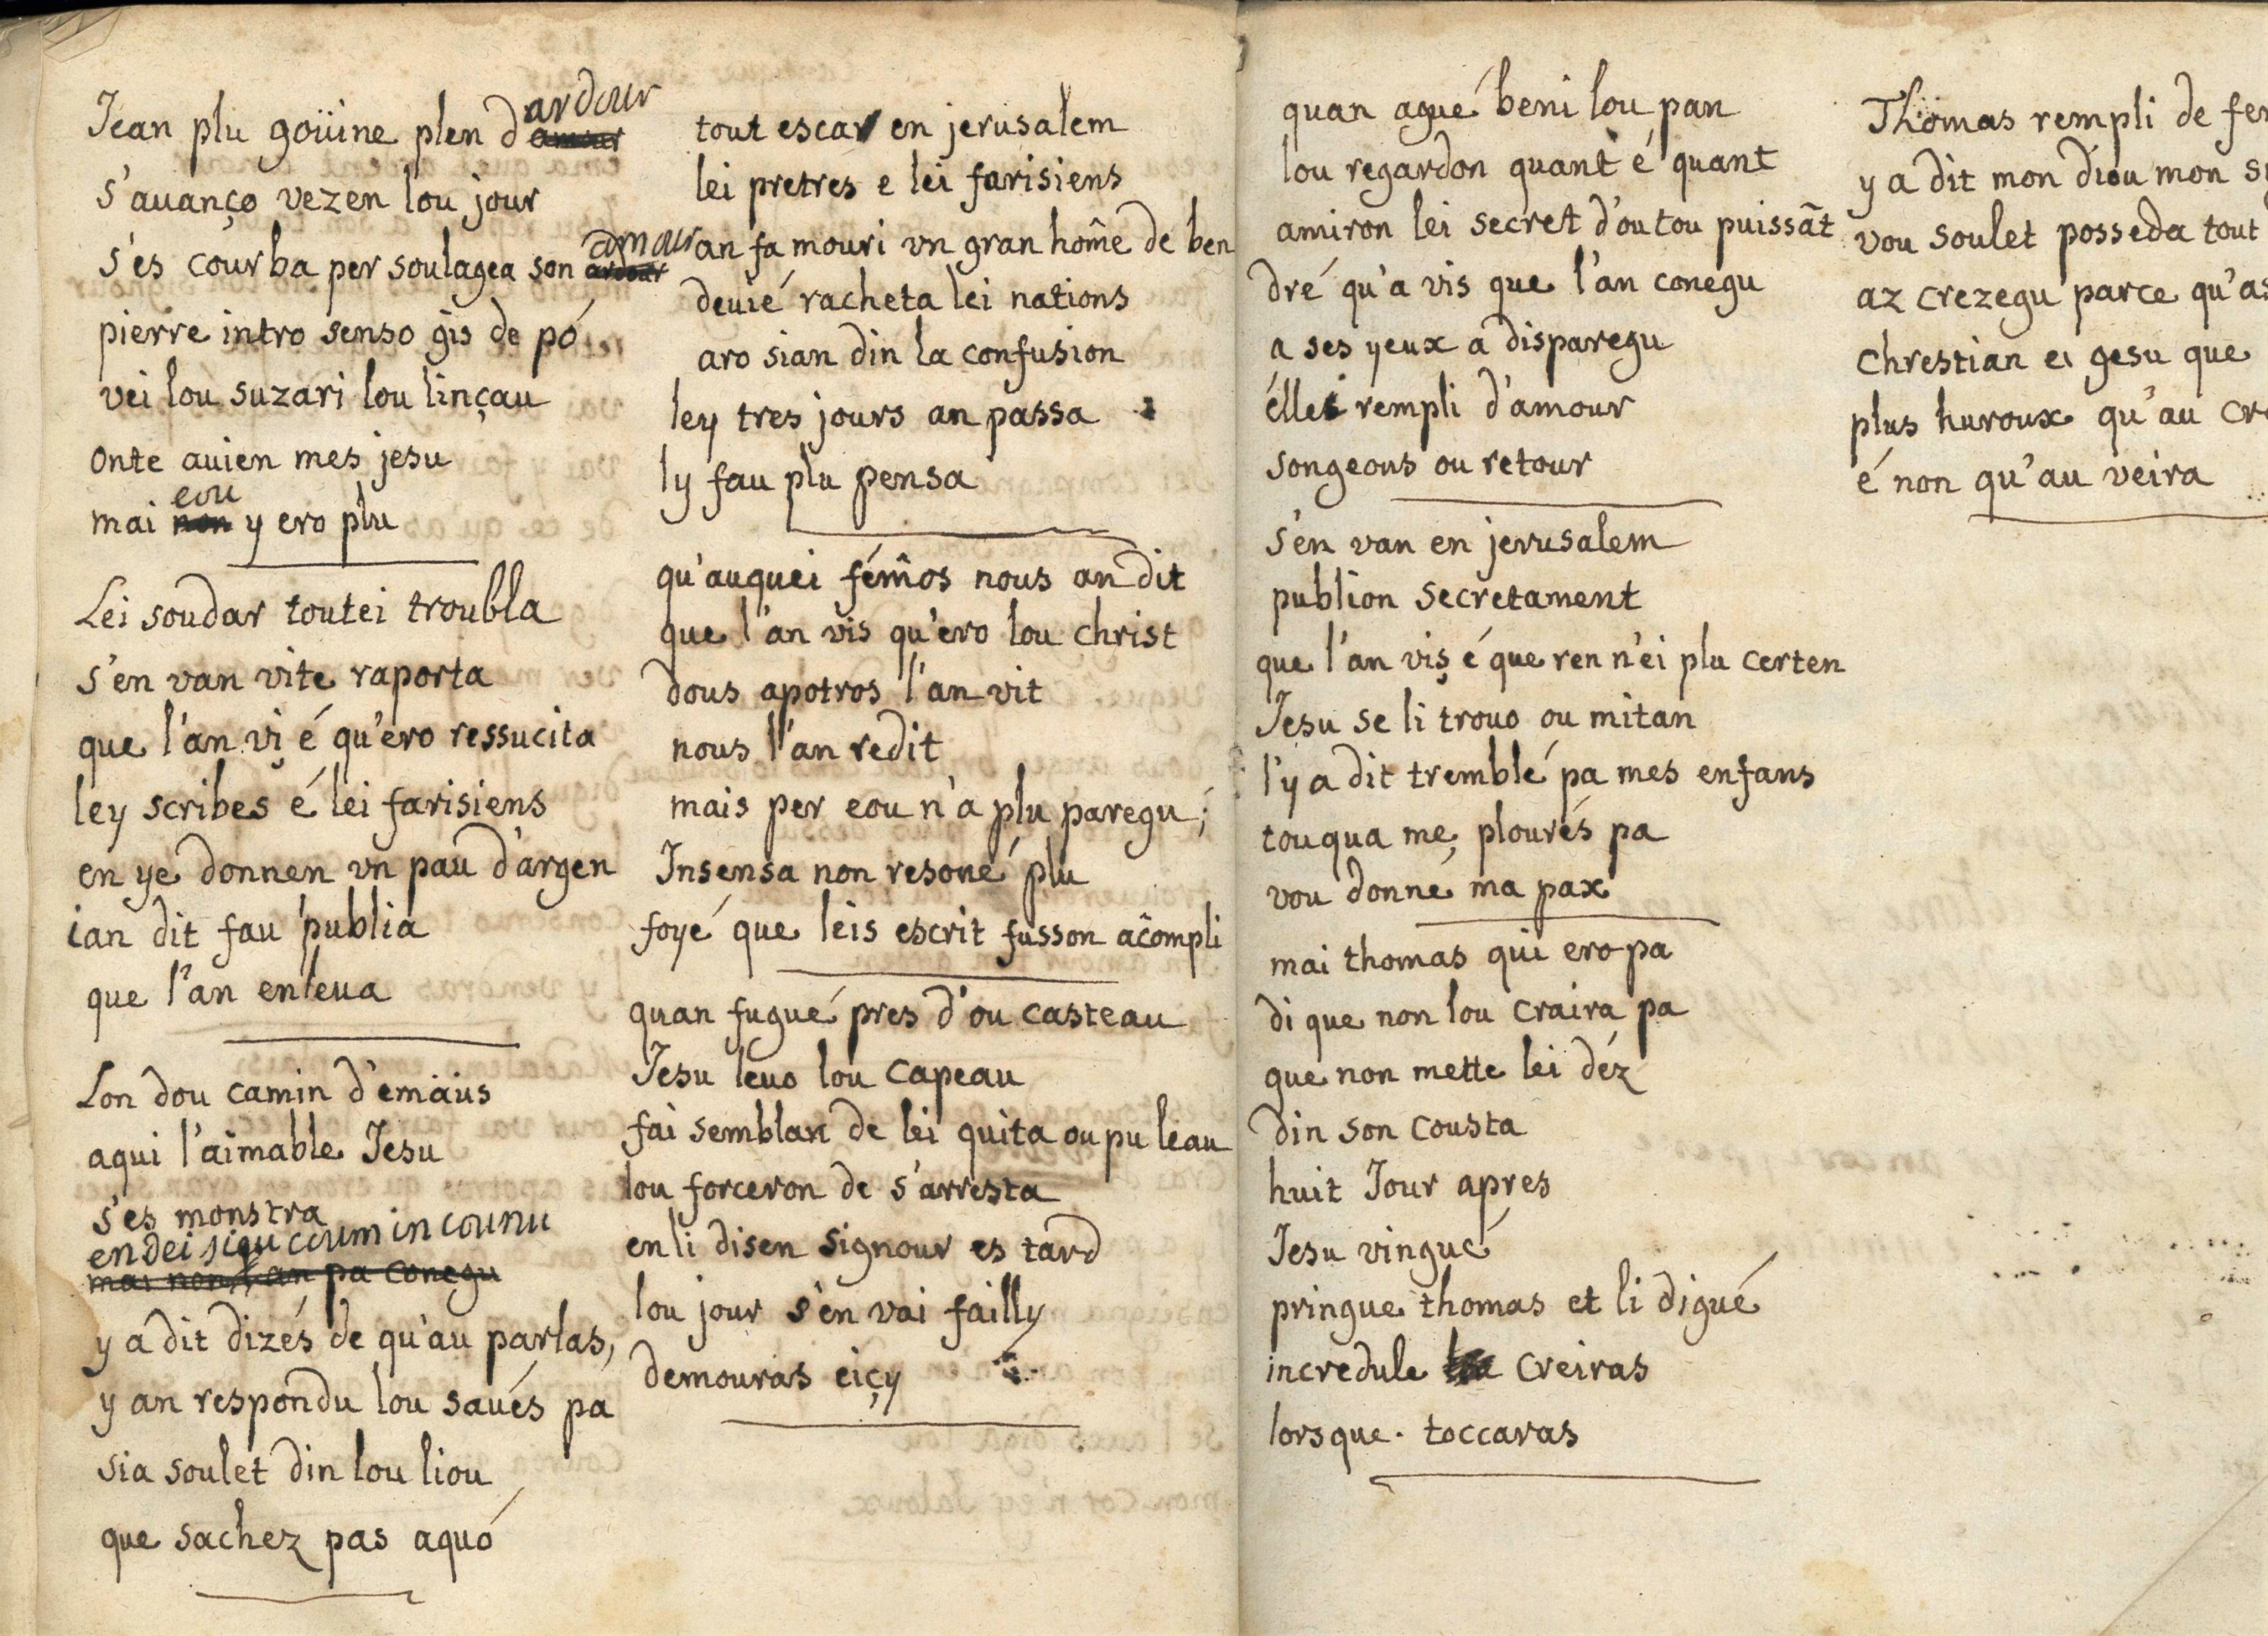 Jean plu goüine plen d'ardour
s'auanço vezen lou jour
s'es courba per soulagea son amour
pierre intro senso gis de pó
vei lou suzari lou linçau
onte auien mes jesu
mai eou y ero plu
Lei soudar toutei troubla
s'en van vite raporta
que l'an vi é qu'ero ressucita
ley scribes é lei farisiens
en ye donnen vn pau d'argen
ian dit fau publia
que l'an enleua
Lon dou camin d'emäus
aqui l'aimable Jesu
s'es monstra
en dei sieu coum inconnu
mai non l'an pa conegu
y a dit dizés de qu'au parlas,
y an respondu lou saués pa
sia soulet din lou liou
que sachez pas aquó
tout escar en jerusalem
lei pretres e lei farisiens
an fa mouri vn gran hom̂e de ben
deuié racheta lei nations
aro sian din la confusion
ley tres jours an passa
ly fau plu pensa
qu'auquei fém̂os nous an dit
que l'an vis qu'ero lou christ
dous apotros l'an vit
nous l'an redit
mais per eou n'a plu paregu;
Insensa non resoné plu
foyé que leis escrit fusson acompli
quan fugué pres d'ou casteau
Jesu leuo lou capeau
fai semblan de lei quita ou pu leau
lou forceron de s'arresta
en li disen signour es tard
lou jour s'en vai failly
demouras eiçy
quan agué beni lou pan
lou regardon quant é quant
amiron lei secret d'ou tou puissãt
dré qu'a vis que l'an conegu
a ses yeux a disparegu
éllei rempli d'amour
songeons ou retour
s'en van en jerusalem
publion secretament
que l'an vis é que ren n'ei plu certen
Jesu se li trouo ou mitan
l'y a dit tremblé pa mes enfans
touqua me, plourés pa
vou donne ma pax
mai thomas qui ero pa
di que non lou craira pa
que non mette lei déz
din son cousta
huit Jour apres
Jesu vingué
pringue thomas et li digué
incredule creiras
lorsque toccaras
Thomas rempli de
y a dit mon diou mon
vou soulet posseda tout
az crezegu parce
chrestian ei gesu que
plus huroux qu'au
é non qu'au veira